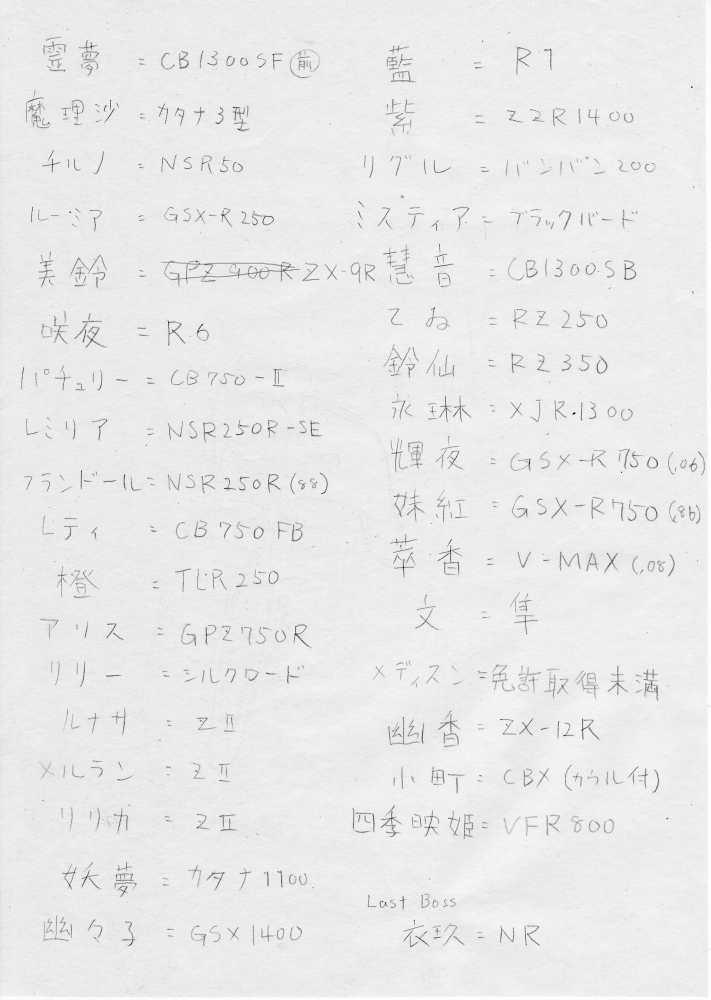 霊夢 = CB1300SF 前
魔理沙 = カタナ3型
チルノ = NSR50
ルーミア = GSX-R250
美鈴 = GPZ900R ZX-9R
咲夜 = R6
パチュリー = CB750-Ⅱ
レミリア = NSR250R-SE
フランドール = NSR250R(88)
レティ = CB750FB
橙 = TLR250
アリス = GPZ750R
リリー = シルクロード
ルナサ = ZⅡ
メルラン = ZⅡ
リリカ = ZⅡ
妖夢 = カタナ1100
幽々子 = GSX1400
藍 = R1
紫 = ZZR1400
リグル = バンバン200
ミスティア = ブラックバード
慧音 = CB1300SB
てゐ = RZ250
鈴仙 = RZ350
永琳 = XJR1300
輝夜 = GSX-R750(,06)
妹紅 = GSX-R750(,86)
萃香 = V-MAX(,08)
文 = 隼
メディスン = 免許取得未満
幽香 = ZX-12R
小町 = CBX(カウル付)
四季映姫 = VFR800
Last Boss
衣玖 = NR